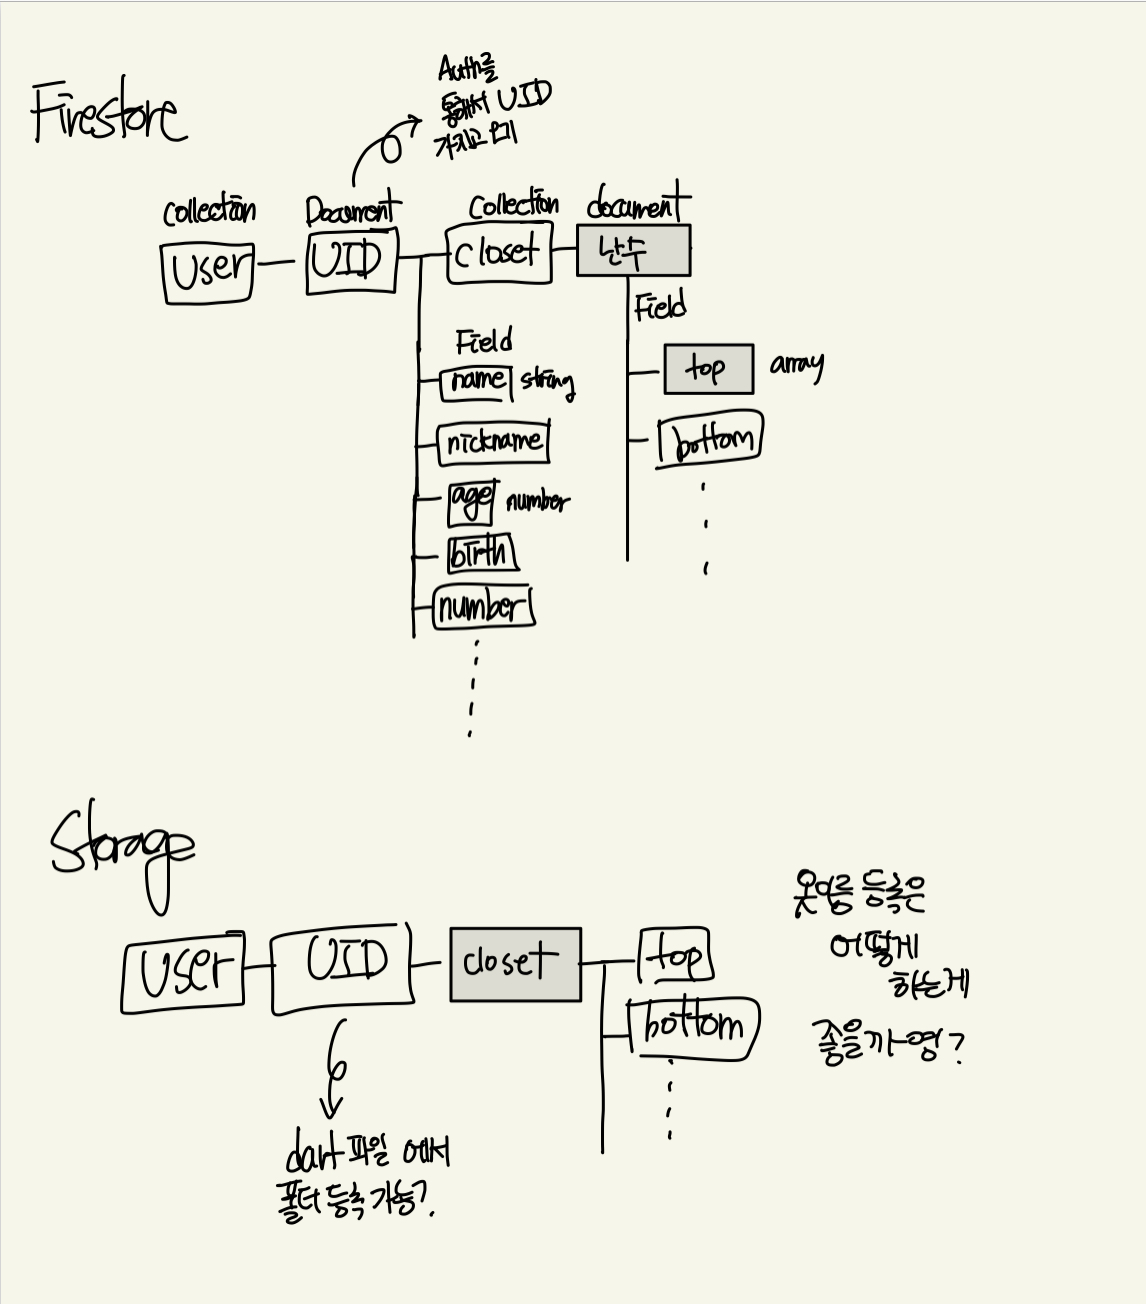 Firestore
Auth를
통해서 UID
가지고 오기
collection
Document
Collection
document
User
UID
closet
난수
Field
name
string
nickname
age
number
birth
number
Field
top
array
bottom
Storage
User
UID
closet
top
bottom
dart 파일 에서
폴더 등록 가능?
옷이름 등록은
어떻게
하는게
좋을까영?